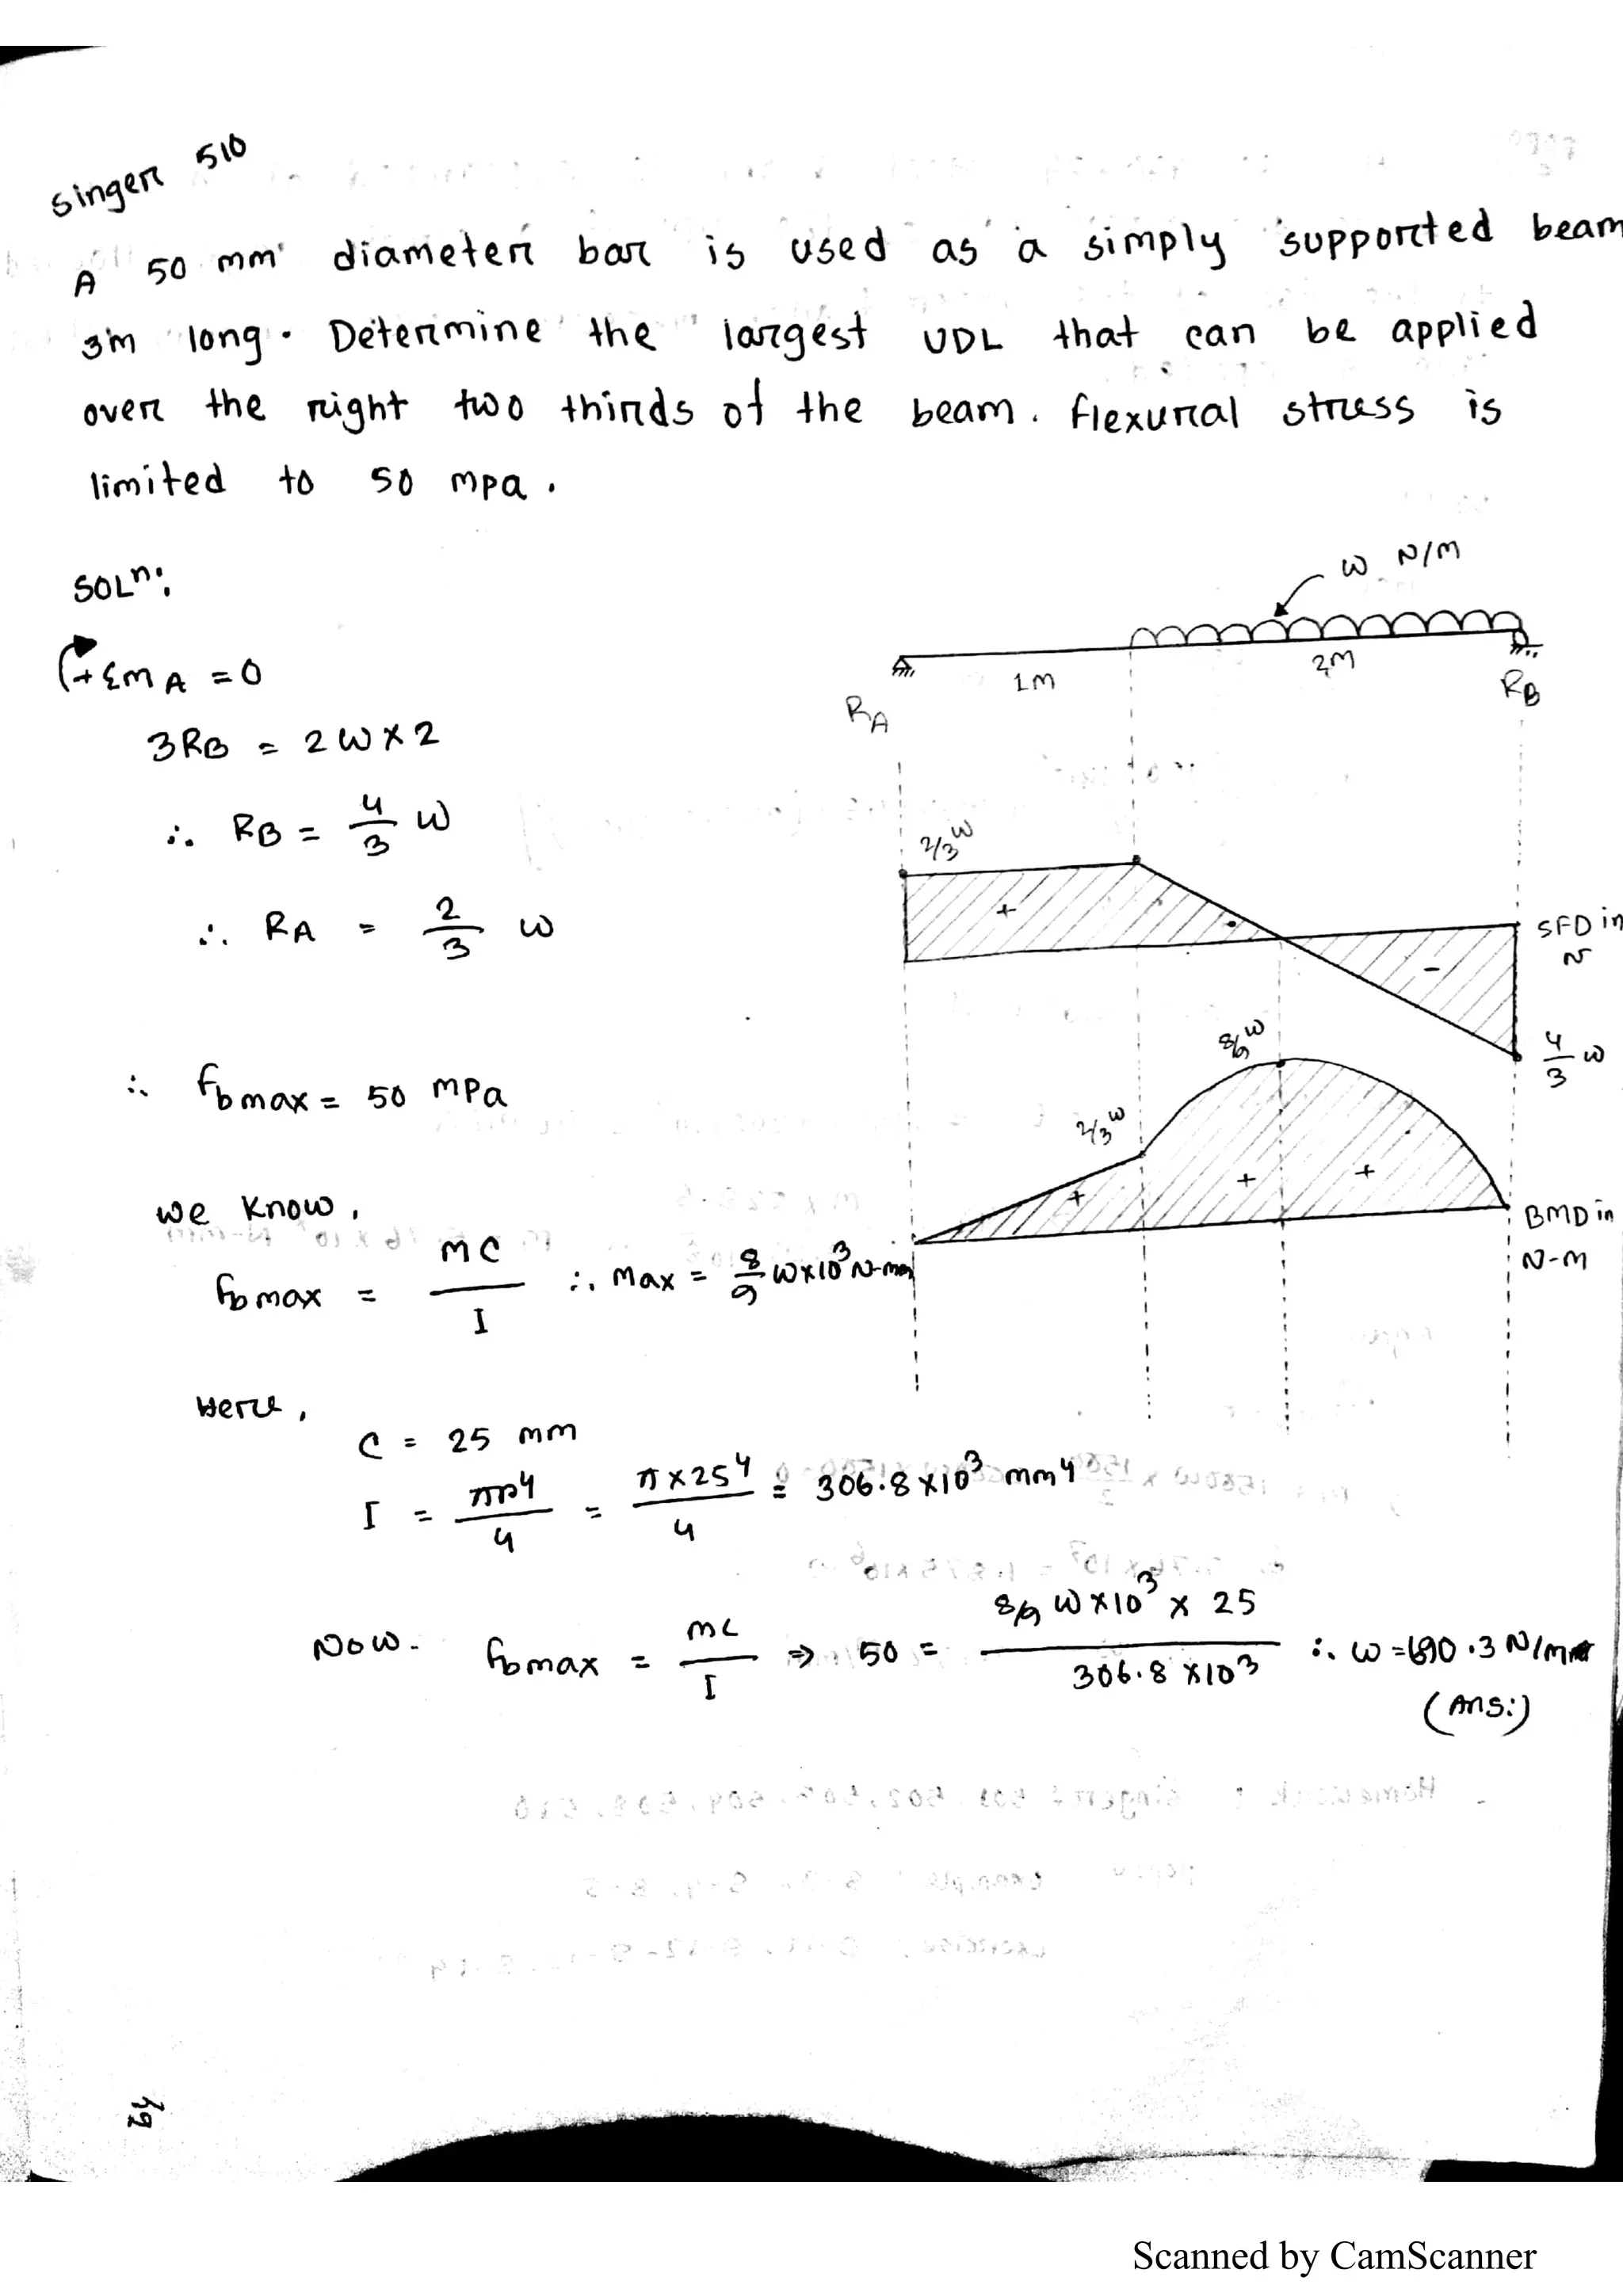 singer 510
A 50 mm diameter bar is used as a simply supported beam
3m long. Determine the largest UDL that can be applied
over the right two thirds of the beam. Flexural stress is
limited to 50 mpa.
SOLⁿ:
w N/M
+ΣMA = 0
1M
2M
RA
RB
3RB = 2W×2
∴ RB = 4/3 W
∴ RA = 2/3 W
2/3 W
+
-
SFD in
N
4/3 W
8/9 W
2/3 W
+
+
+
BMD in
N-M
∴ fbmax = 50 MPa
We Know,
fbmax = MC/I ∴ Max = 8/9 W×10³ N-mm
Here,
C = 25 mm
I = πr⁴/4 = π×25⁴/4 = 306.8×10³ mm⁴
Now. fbmax = MC/I ⇒ 50 = 8/9 W×10³ × 25 / 306.8×10³ ∴ W = 690.3 N/m
(Ans:)
Scanned by CamScanner